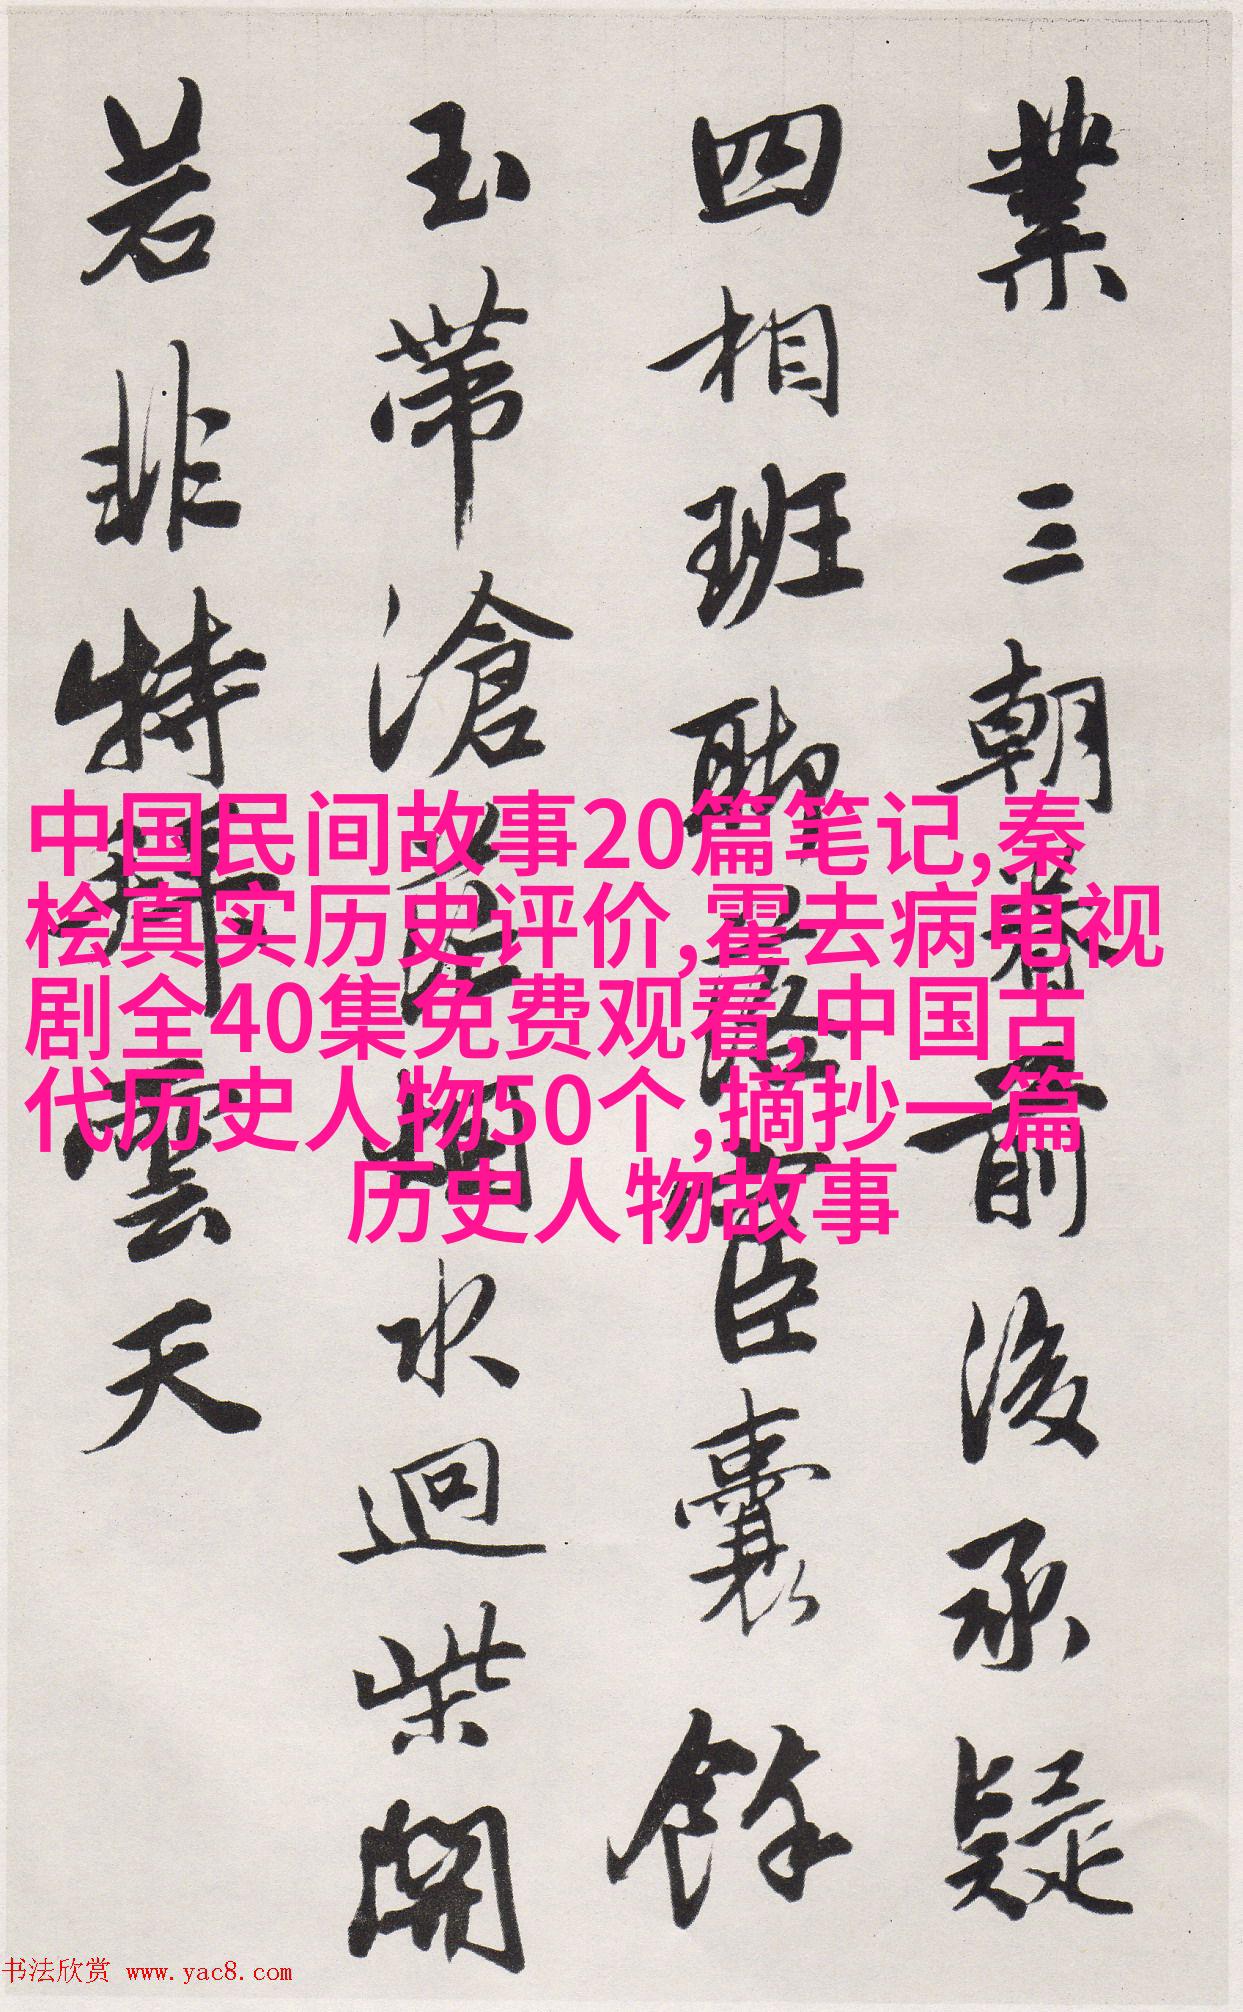 業 三朝前後承疑
四相班聯臣囊餘
玉帶滄水迴柴開
若非特雲天
中国民间故事20篇笔记,秦
桧真实历史评价,霍去病电视
剧全40集免费观看,中国古
代历史人物50个,摘抄一篇
历史人物故事
书法欣赏 www.yac8.com